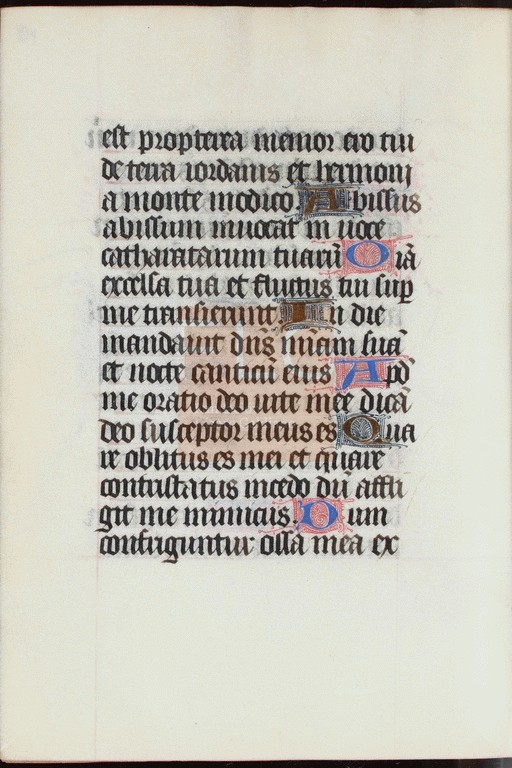 est propterea memor ero tui
de terra iordanis et hermonij
a monte modico Abissus
abissum inuocat in uoce
catharatarum tuarū Oīa
excelsa tua et fluctus tui sup
me transierunt. In die
mandauit dn̄s mīam suā
et nocte canticū eius Apd̓
me oratio deo uite mee dicā
deo susceptor meus es Qua
re oblitus es mei et quare
contristatus incedo dū affli
git me inimicus. Dum
confriguntur ossa mea ex